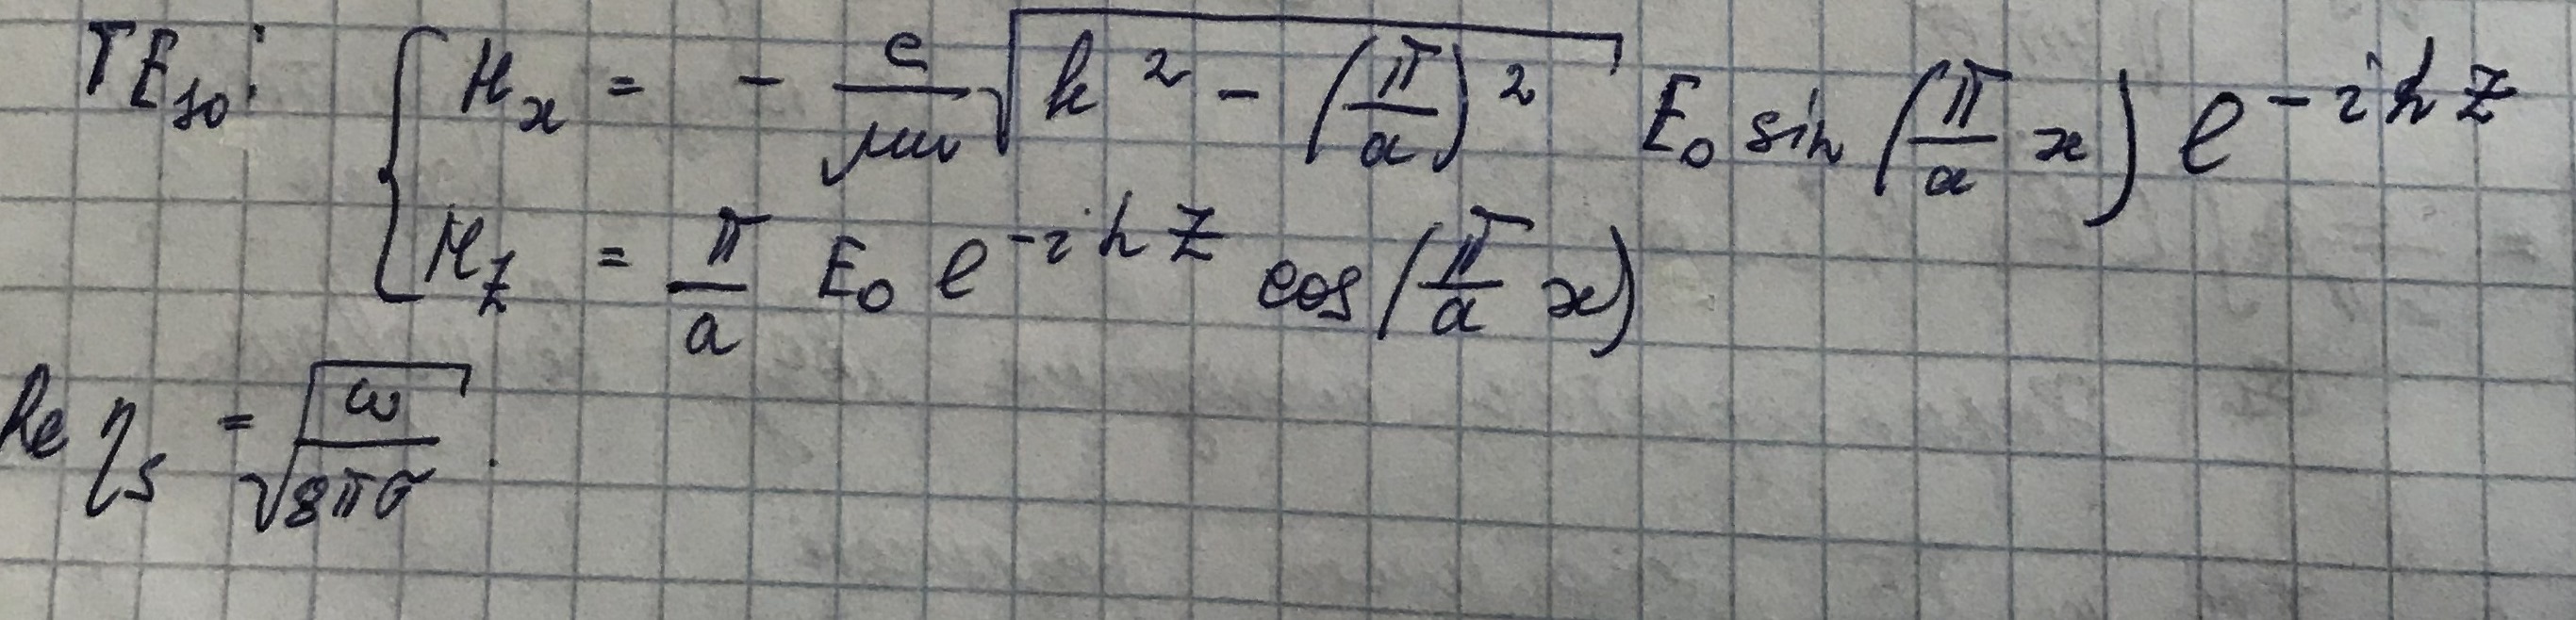 TE₁₀: { Hₓ = - c/μω √(k² - (π/a)²) E₀ sin(π/a x) e^(-ihz)
H_z = π/a E₀ e^(-ihz) cos(π/a x)
Re η_s = √(ω/8πσ).